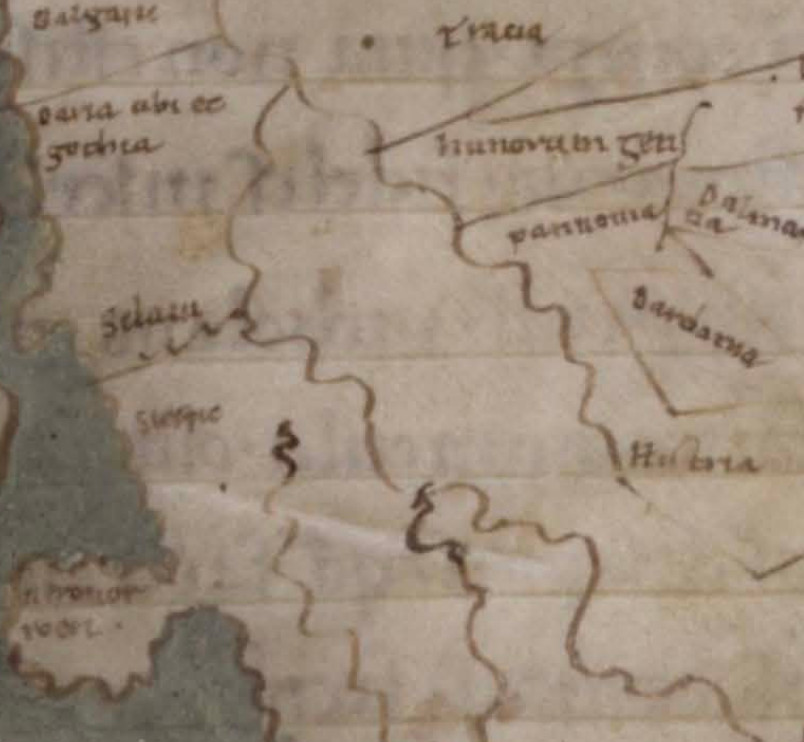 Balgarii
Tracia
Dacia ubi et
gothia
hunorum gens
pannonia
Dalma
tia
Sclaui
Dardania
Histria